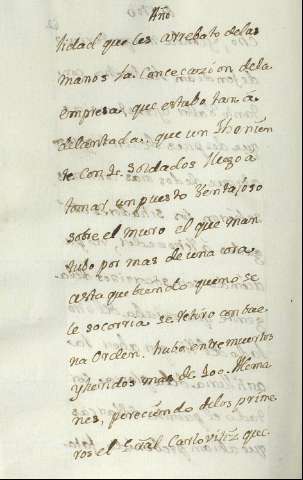 Año
tidad que les arrebato delas
manos la Consecuzion dela
empresa, que estaba tan a-
delantada, que un Thenien
te Con Soldados llego a
tomar un puesto Ventajoso
sobre el muro el que man
tubo por mas de una ora
asta que biendo que no se
le socorria se retiro con bue
na Orden. hubo entre muertos
y heridos mas de 300. Alema
nes, pereciendo delos prime
ros el Gral Carlovitz que